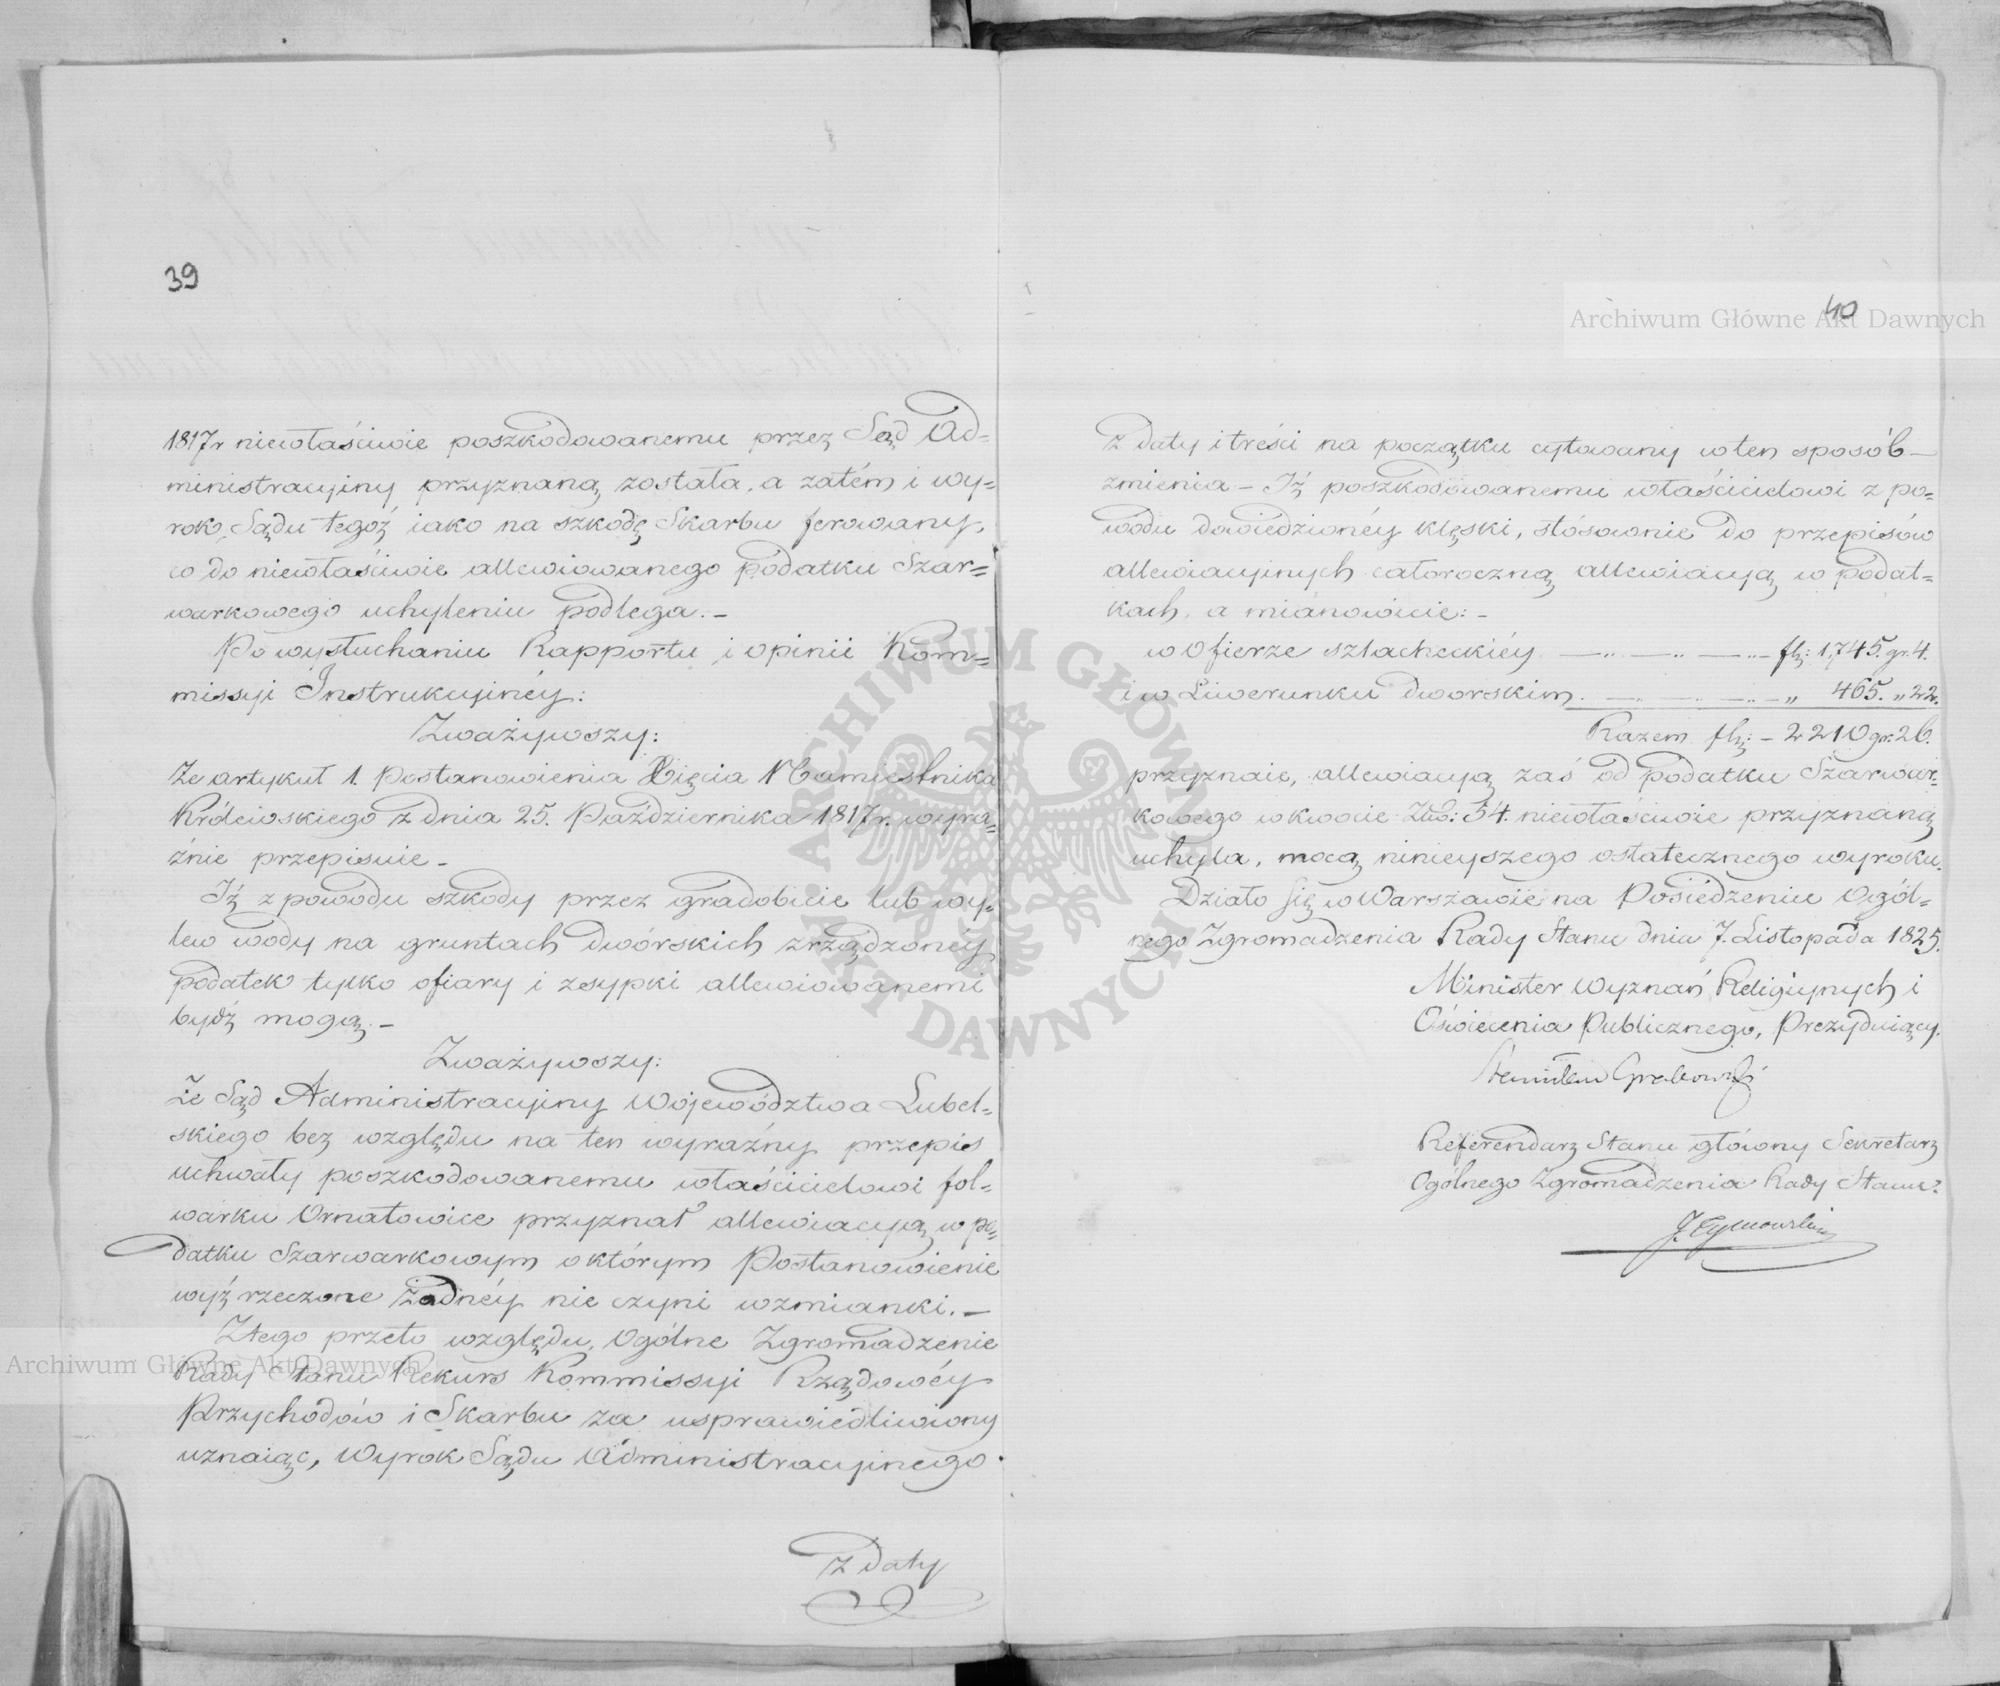 39
1817r niewłaściwie poszkodowanemu przez Sąd Ad=
ministracyiny przyznaną została, a zatém i wy=
rok Sądu tegoż iako na szkodę Skarbu ferowany,
co do niewłaściwie allewiowanego podatku Szar=
warkowego uchyleniu podlega. –
Po wysłuchaniu Rapportu i opinii Kom=
missyi Instrukcyinéy:
Zważywszy:
Że artykuł 1. Postanowienia Xięcia Namiestnika
Królewskiego z dnia 25. Października 1817r. wyra=
źnie przepisuie –
Iż z powodu szkody przez gradobicie lub wy=
lew wody na gruntach dwórskich zrządzonéy
podatek tylko ofiary i zsypki allewiowanemi
bydź mogą. –
Zważywszy:
Że Sąd Administracyiny Województwa Lubel=
skiego bez względu na ten wyraźny przepis
uchwały poszkodowanemu właścicielowi fol=
warku Ornatowice przyznał allewiacyą w po=
datku Szarwarkowym o którym Postanowienie
wyż rzeczone żadnéy nie czyni wzmianki. –
Z tego przeto względu, Ogólne Zgromadzenie
Rady Stanu Rekurs Kommissyi Rządowéy
Przychodów i Skarbu za usprawiedliwiony
uznaiąc, Wyrok Sądu Administracyinego
z daty
40
z daty i treści na początku cytowany w ten sposób –
zmienia – Iż poszkodowanemu właścicielowi z po=
wodu dowiedzionéy klęski, stósownie do przepisów
allewiacyinych całoroczną allewiacyą w podat=
kach, a mianowicie: –
w Ofierze szlacheckiéy — „ — „ — „ — fl: 1,745. gr. 4.
i w Liwerunku dworskim. — „ — „ — „ 465. „ 22.
Razem fl: – 2210 gr. 26.
przyznaie, allewiacyą zaś od podatku Szarwar=
kowego w kwocie Złł: 54. niewłaściwie przyznaną
uchyla, mocą ninieyszego ostatecznego wyroku.
Działo się w Warszawie na Posiedzeniu Ogól=
nego Zgromadzenia Rady Stanu dnia 7. Listopada 1825.
Minister Wyznań Religiynych i
Oświecenia Publicznego, Prezyduiący.
Stanisław Grabowski
Referendarz Stanu główny Sekretarz
Ogólnego Zgromadzenia Rady Stanu.
J. Tymowski
Archiwum Główne Akt Dawnych
Archiwum Główne Akt Dawnych
ARCHIWUM GŁÓWNE AKT DAWNYCH